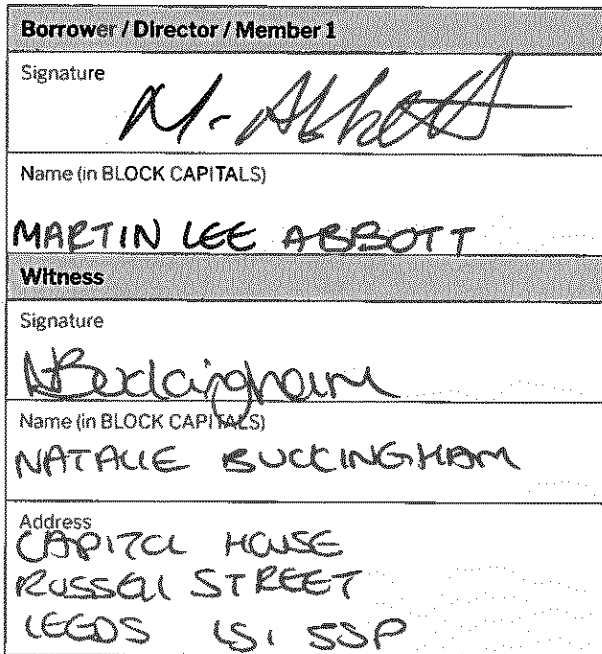 Borrower / Director / Member 1
Signature
M. Abbott
Name (in BLOCK CAPITALS)
MARTIN LEE ABBOTT
Witness
Signature
NBuckingham
Name (in BLOCK CAPITALS)
NATALIE BUCKINGHAM
Address
CAPITOL HOUSE
RUSSELL STREET
LEEDS LS1 5SP